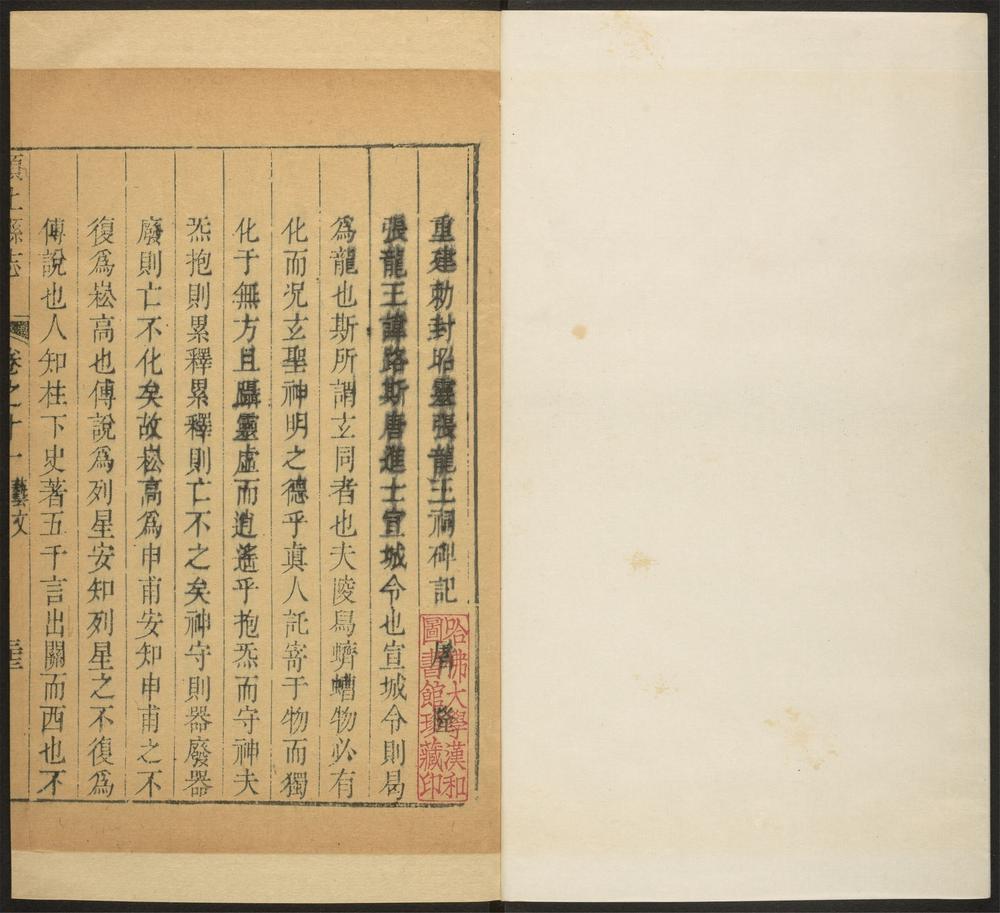 重建勅封昭靈張龍王祠碑記　屠隆
張龍王諱路斯唐進士宣城令也宣城令則曷
爲龍也斯所謂玄同者也夫陵舄蠐螬物必有
化而况玄聖神明之德乎眞人託寄于物而獨
化于無方且躡靈虛而逍遙乎抱炁而守神夫
炁抱則累釋累釋則亡不之矣神守則器廢器
廢則亡不化矣故崧高爲申甫安知申甫之不
復爲崧高也傅說爲列星安知列星之不復爲
傅說也人知柱下史著五千言出關而西也不
上縣志　卷之十一　藝文
哈佛大學漢和
圖書館珍藏印